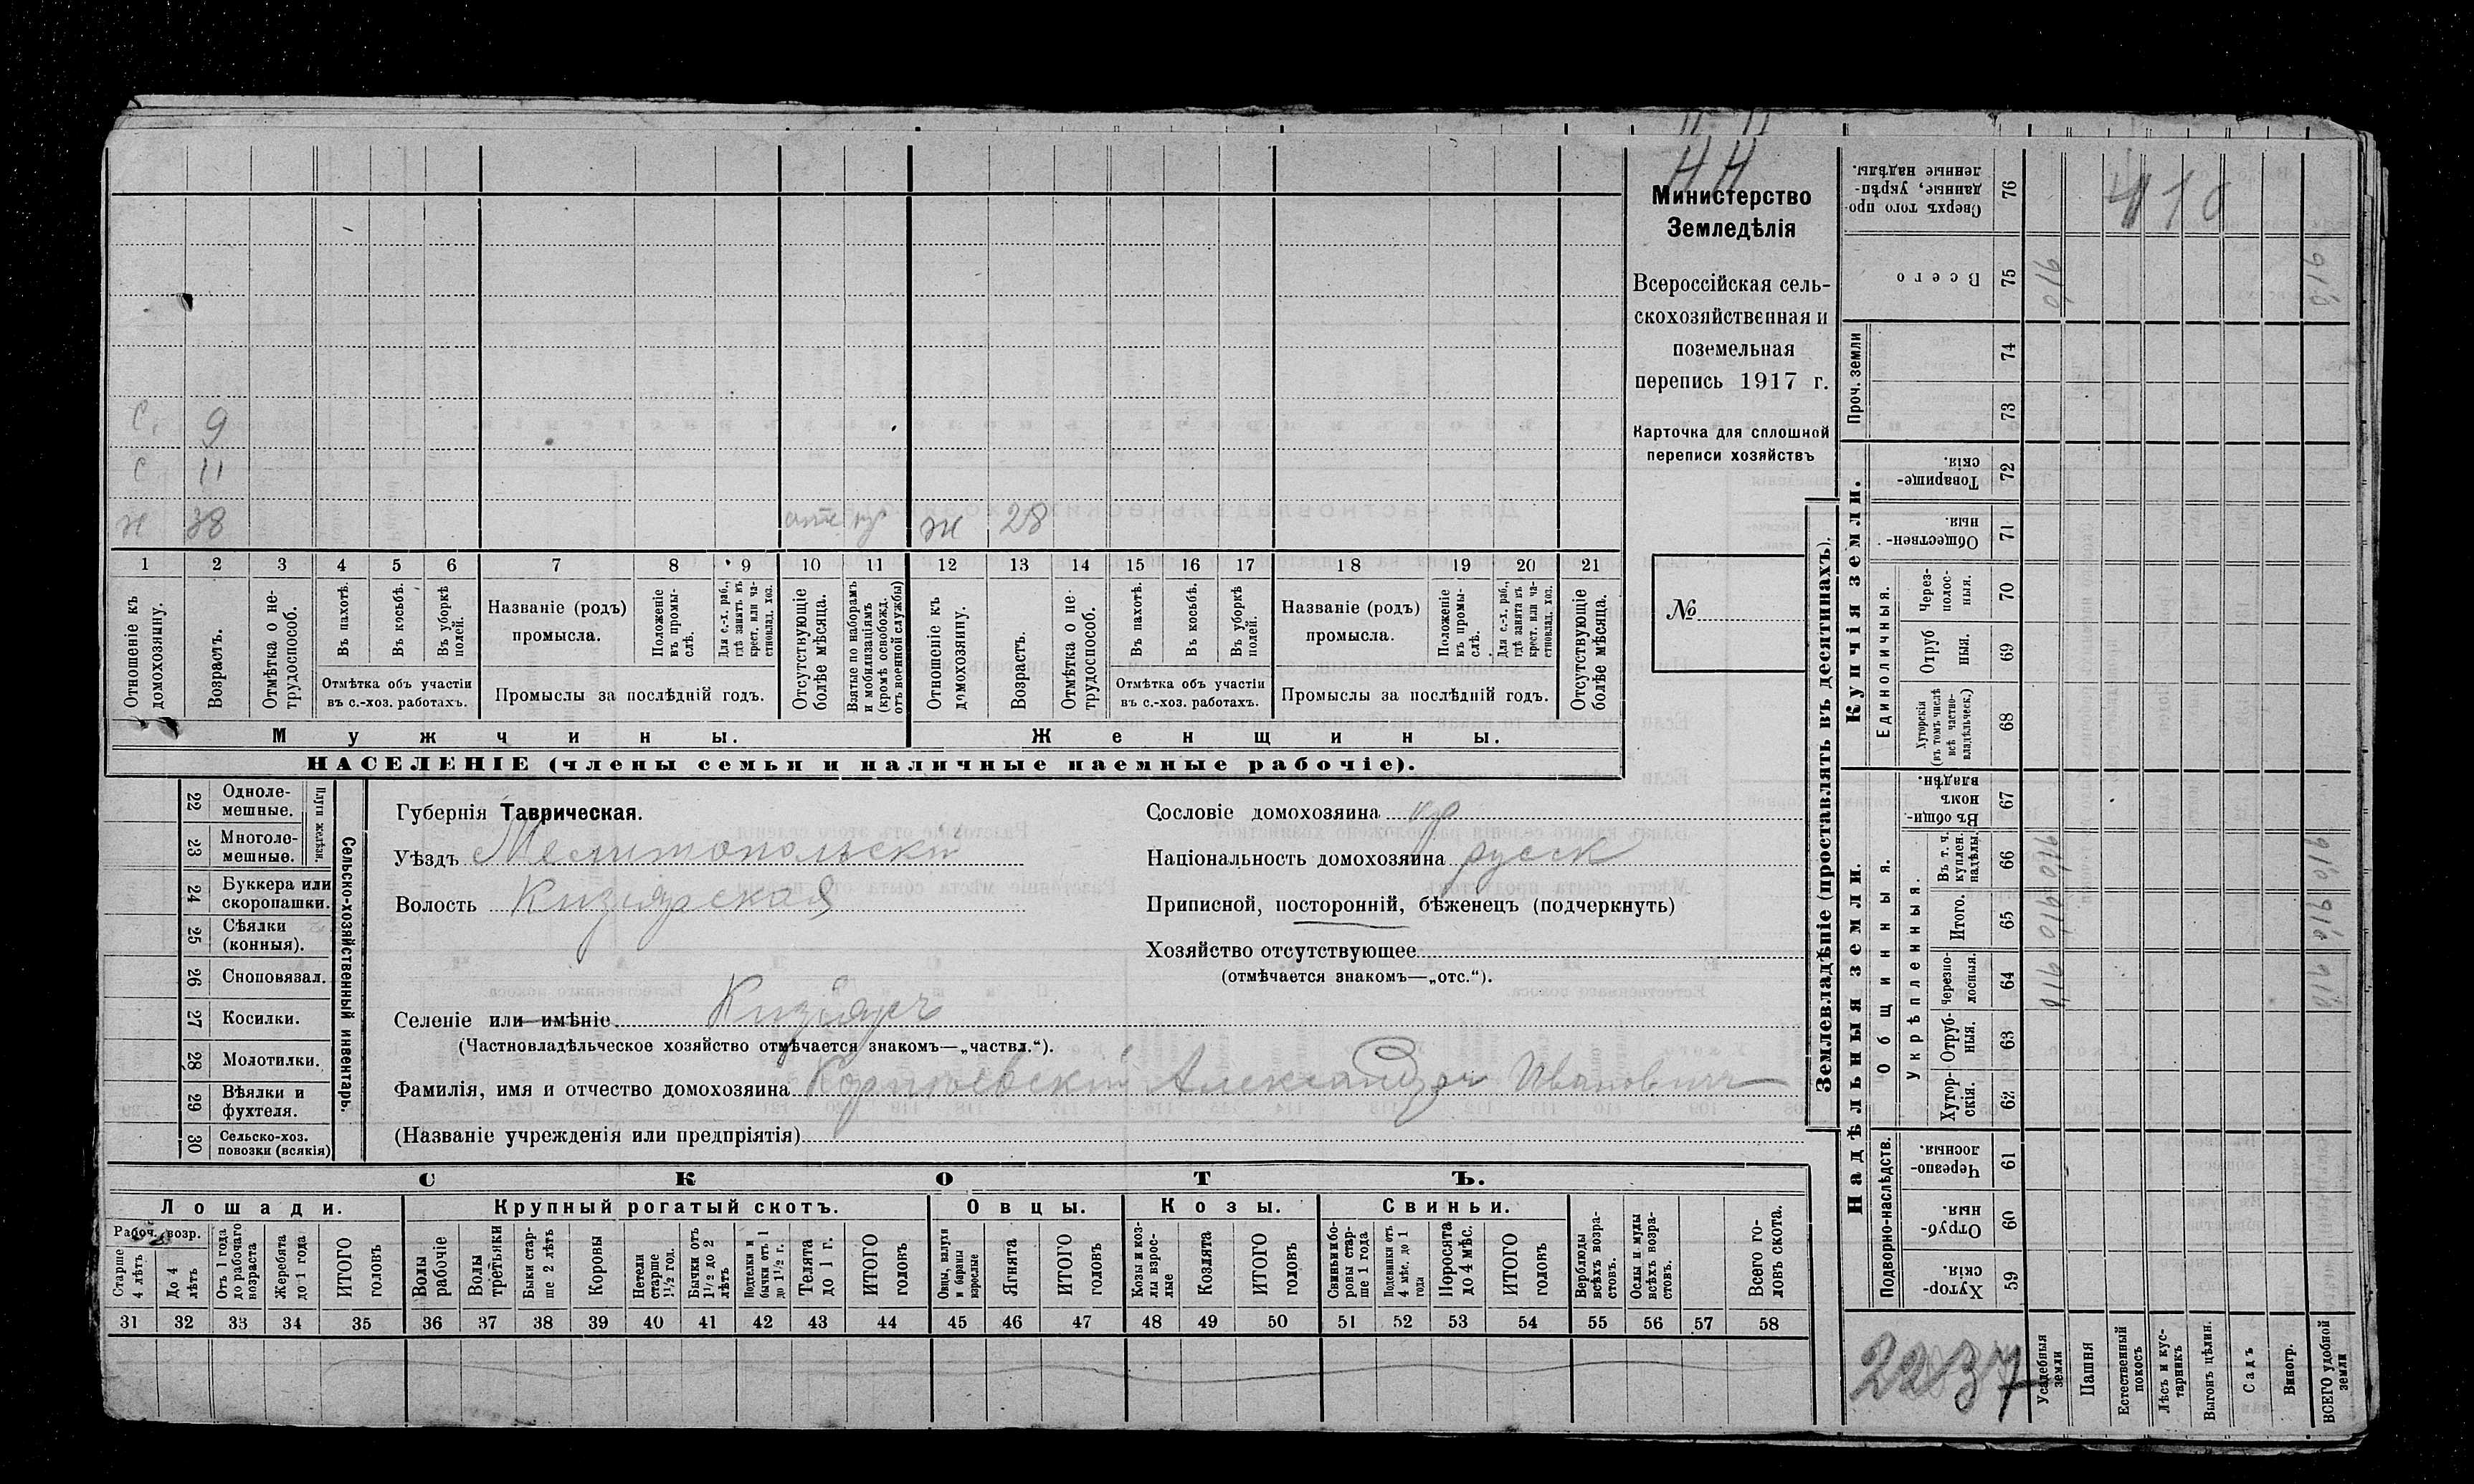 44
Министерство
Земледѣлія
Всероссійская сель-
скохозяйственная и
поземельная
перепись 1917 г.
Карточка для сплошной
переписи хозяйствъ
№
С. 9
С 11
38
ж 28
1 2 3 4 5 6 7 8 9 10 11 12 13 14 15 16 17 18 19 20 21
Отношеніе къ домохозяину.
Возрастъ.
Отмѣтка о не-трудоспособ.
Въ пахотѣ.
Въ косьбѣ.
Въ уборкѣ полей.
Отмѣтка объ участіи
въ с.-хоз. работахъ.
Названіе (родъ)
промысла.
Положеніе въ промы-слѣ.
Для с.-х. раб., гдѣ занятъ въ крест. или ча-стновлад. хоз.
Промыслы за послѣдній годъ.
Отсутствующіе болѣе мѣсяца.
Взятые по наборамъ и мобилизаціямъ (кромѣ освобожд. отъ военной службы)
Отношеніе къ домохозяину.
Возрастъ.
Отмѣтка о не-трудоспособ.
Въ пахотѣ.
Въ косьбѣ.
Въ уборкѣ полей.
Отмѣтка объ участіи
въ с.-хоз. работахъ.
Названіе (родъ)
промысла.
Положеніе въ промы-слѣ.
Для с.-х. раб., гдѣ занята въ крест. или ча-стновлад. хоз.
Промыслы за послѣдній годъ.
Отсутствующіе болѣе мѣсяца.
Мужчины.
Женщины.
НАСЕЛЕНІЕ (члены семьи и наличные наемные рабочіе).
22 Одноле-мешные.
23 Многоле-мешные.
Плуги желѣзн.
24 Буккера или скоропашки.
25 Сѣялки (конныя).
26 Сноповязал.
27 Косилки.
28 Молотилки.
29 Вѣялки и фухтеля.
30 Сельско-хоз. повозки (всякія)
Сельско-хозяйственный инвентарь.
Губернія Таврическая.
Уѣздъ Мелитопольскій
Волость Кизіярская
Селеніе или имѣніе Кизіяръ
(Частновладѣльческое хозяйство отмѣчается знакомъ—„частвл.“).
Фамилія, имя и отчество домохозяина Александръ Ивановичъ
(Названіе учрежденія или предпріятія)
Сословіе домохозяина кр
Національность домохозяина русск
Приписной, посторонній, бѣженецъ (подчеркнуть)
Хозяйство отсутствующее
(отмѣчается знакомъ—„отс.“).
СКОТЪ.
Лошади.
Крупный рогатый скотъ.
Овцы.
Козы.
Свиньи.
Рабоч. возр.
Старше 4 лѣтъ
До 4 лѣтъ
Отъ 1 года до рабочаго возраста
Жеребята до 1 года
ИТОГО головъ
Волы рабочіе
Волы третьяки
Быки стар-ше 2 лѣтъ
Коровы
Нетели старше 1½ год.
Бычки отъ 1½ до 2 лѣтъ
Подтелки и бычки отъ 1 до 1½ г.
Телята до 1 г.
ИТОГО головъ
Овцы, валухи и бараны взрослые
Ягнята
ИТОГО головъ
Козы и коз-лы взрос-лые
Козлята
ИТОГО головъ
Свиньи и бо-ровы стар-ше 1 года
Подсвинки отъ 4 мѣс. до 1 года
Поросята до 4 мѣс.
ИТОГО головъ
Верблюды всѣхъ возра-стовъ.
Ослы и мулы всѣхъ возра-стовъ.
Всего го-ловъ скота.
31 32 33 34 35 36 37 38 39 40 41 42 43 44 45 46 47 48 49 50 51 52 53 54 55 56 57 58
Землевладѣніе (проставлять въ десятинахъ).
Купчія земли.
Надѣльныя земли.
Сверхъ того про-данные, укрѣп-ленные надѣлы. 76
Всего 75
Проч. земли
74
73
Товарище-скія. 72
Обществен-ныя. 71
Единоличныя.
Через-полос-ныя. 70
Отруб ныя. 69
Хуторскія (въ томъ числѣ всѣ частно-владѣльческ.) 68
Общинныя.
Въ общи-номъ владѣн. 67
Укрѣпленныя.
Въ т. ч. куплен. надѣлы. 66
Итого. 65
Черезпо-лосныя. 64
Отруб-ныя. 63
Хутор-скія. 62
Подворно-наслѣдств.
Черезпо-лосныя. 61
Отруб-ныя. 60
Хутор-скія. 59
Усадебныя земли
Пашня
Естественный покосъ
Лѣсъ и кус-тарникъ
Выгонъ цѣлин.
Садъ
Виногр.
ВСЕГО удобной земли
2237